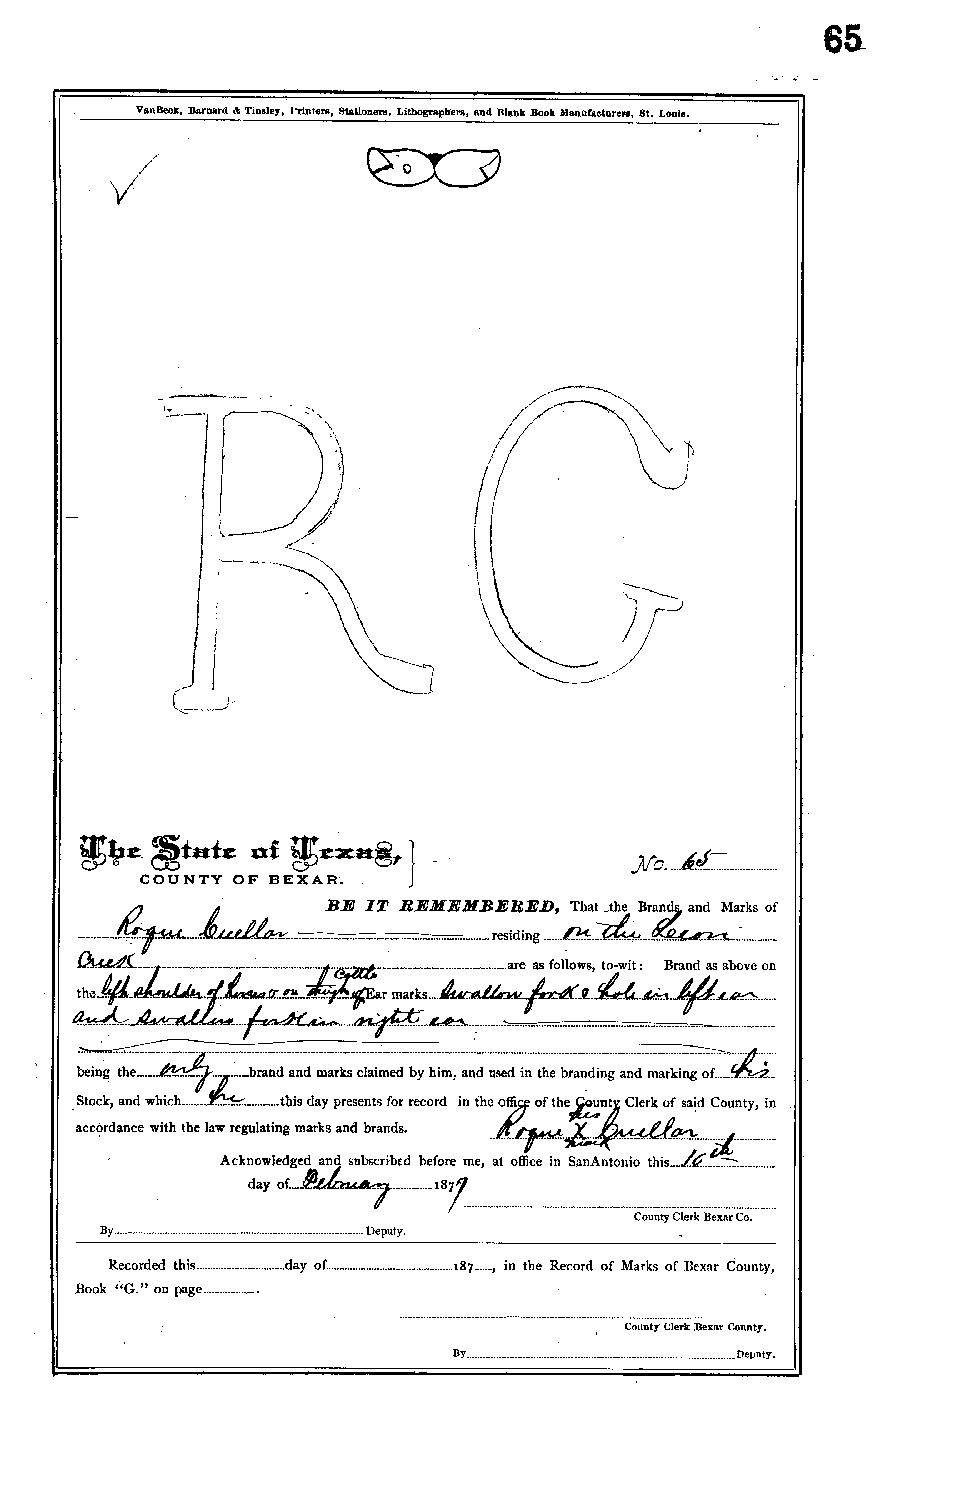 65
VanBeek, Barnard & Tinsley, Printers, Stationers, Lithographers, and Blank Book Manufacturers, St. Louis.
R G
The State of Texas,
COUNTY OF BEXAR.
No. 65
BE IT REMEMBERED, That the Brands, and Marks of
Roque Cuellar residing on the Leon
Creek are as follows, to-wit: Brand as above on
the left shoulder of horses & on thigh of cattle Ear marks Swallow fork & hole in left ear
and swallow fork in right ear
being the only brand and marks claimed by him, and used in the branding and marking of his
Stock, and which he this day presents for record in the office of the County Clerk of said County, in
accordance with the law regulating marks and brands. Roque his X mark Cuellar
Acknowledged and subscribed before me, at office in SanAntonio this th
day of February 1879
County Clerk Bexar Co.
By Deputy.
Recorded this day of 187 , in the Record of Marks of Bexar County,
Book "G." on page .
County Clerk Bexar County.
By Deputy.